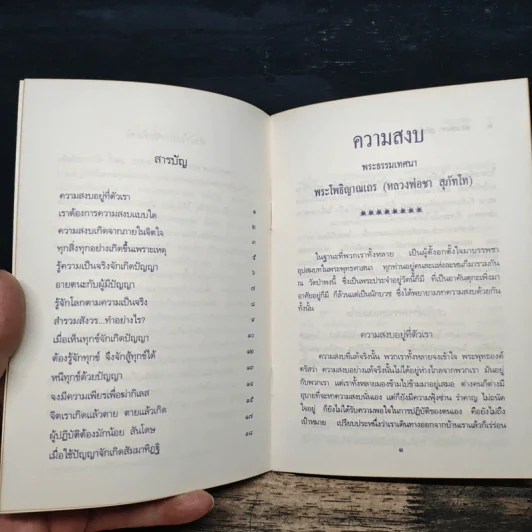 สารบัญ
ความสงบอยู่ที่ตัวเรา
เราต้องการความสงบแบบใด ๑
ความสงบเกิดจากภายในจิตใจ ๒
ทุกสิ่งทุกอย่างเกิดขึ้นเพราะเหตุ ๓
รู้ความเป็นจริงจักเกิดปัญญา ๕
อายตนะกับผู้มีปัญญา ๖
รู้จักโลกตามความเป็นจริง ๗
สำรวมสังวร...ทำอย่างไร? ๘
เมื่อเห็นทุกข์จักเกิดปัญญา ๑๐
ต้องรู้จักทุกข์ จึงจักสู้ทุกข์ได้ ๑๒
หนีทุกข์ด้วยปัญญา ๑๓
จงมีความเพียรเพื่อฆ่ากิเลส ๑๔
จิตเราเกิดแล้วตาย ตายแล้วเกิด ๑๕
ผู้ปฏิบัติต้องมักน้อย สันโดษ ๑๗
เมื่อใช้ปัญญาจักเกิดสัมมาทิฏฐิ ๑๘
ความสงบ
พระธรรมเทศนา
พระโพธิญาณเถร (หลวงพ่อชา สุภัทโท)
********
ในฐานะที่พวกเราทั้งหลาย เป็นผู้ตั้งอกตั้งใจมาบรรพชา
อุปสมบทในพระพุทธศาสนา ทุกท่านอยู่คนละแห่งละหนก็มารวมกัน
ณ วัดป่าพงนี้ ซึ่งเป็นพระประจำอยู่วัดนี้ก็มี ที่เป็นอาคันตุกะเพิ่งมา
อาศัยอยู่ก็มี ก็ล้วนแต่เป็นนักบวช ซึ่งได้พยายามหาความสงบด้วยกัน
ทั้งนั้น
ความสงบอยู่ที่ตัวเรา
ความสงบที่แท้จริงนั้น พวกเราทั้งหลายจงเข้าใจ พระพุทธองค์
ตรัสว่า ความสงบอย่างแท้จริงนั้นไม่ได้อยู่ห่างไกลจากพวกเรา มันอยู่
กับพวกเรา แต่เราทั้งหลายมองข้ามไปข้ามมาอยู่เสมอ ต่างคนก็ต่างมี
อุบายที่จะหาความสงบนั้นเอง แต่ก็ยังมีความฟุ้งซ่าน รำคาญ ไม่ถนัด
ใจอยู่ ก็ยังไม่ได้รับความพอใจในการปฏิบัติของตนเอง คือยังไม่ถึง
เป้าหมาย เปรียบประหนึ่งว่าเราเดินทางออกจากบ้านเราแล้วก็เร่ร่อน
๑